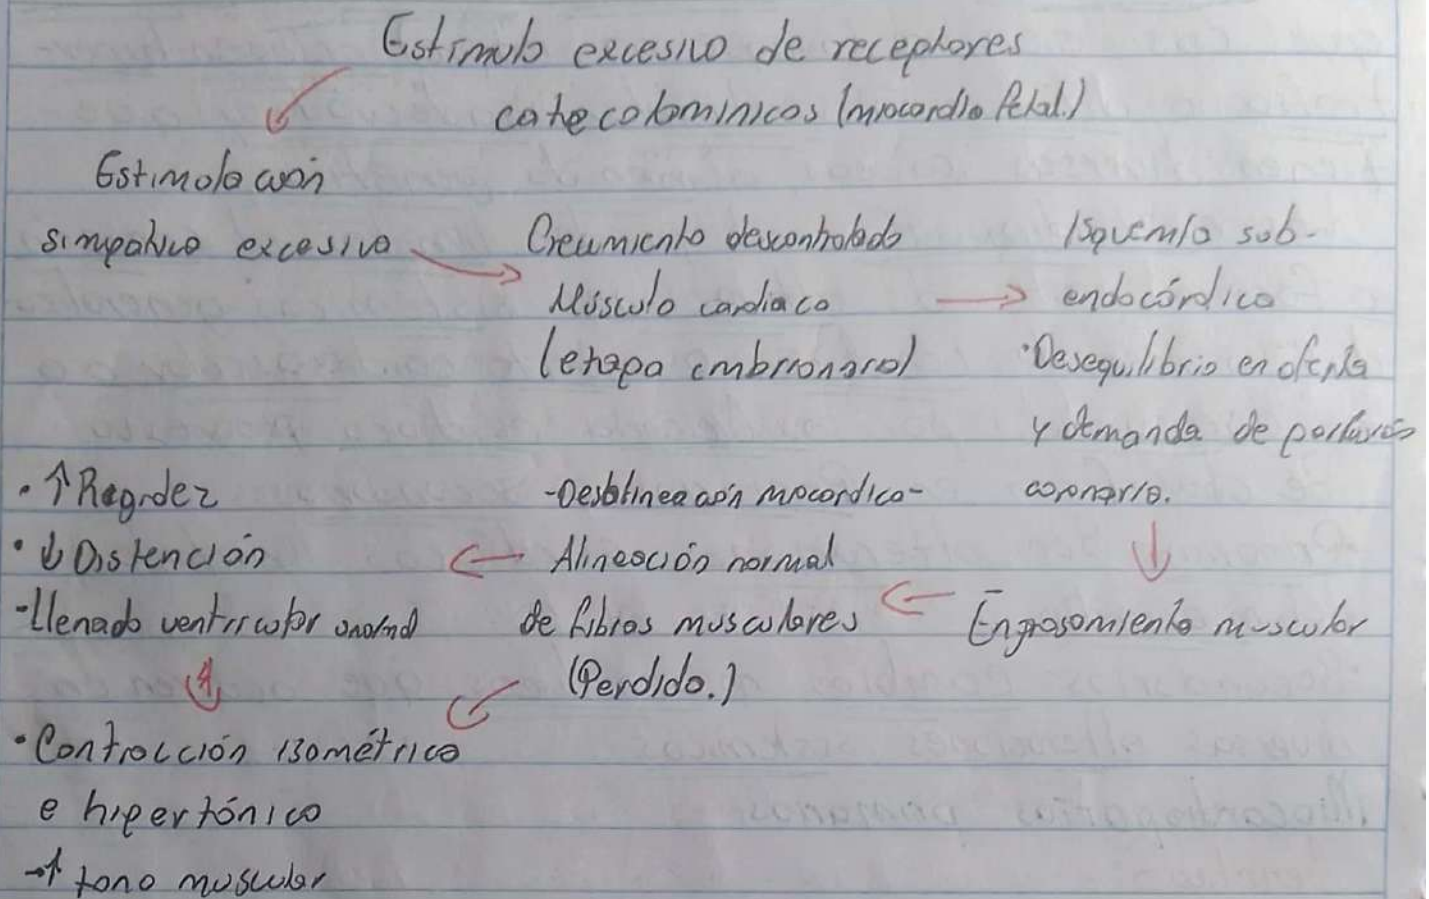 Estímulo excesivo de receptores
catecolomínicos (miocardio fetal.)
Estimulación
simpático excesivo
Crecimiento descontrolado
Músculo cardiaco
(etapa embrionaral)
Isquemia sub-
endocárdico
·Desequilibrio en oferta
y demanda de
coronario.
Engrosamiento muscular
-Desalineación miocárdica-
Alineación normal
de fibras musculares
(Perdido.)
· ↑ Rigidez
· ↓ Distención
-llenado ventricular
· Contracción isométrico
e hipertónico
→↑ tono muscular